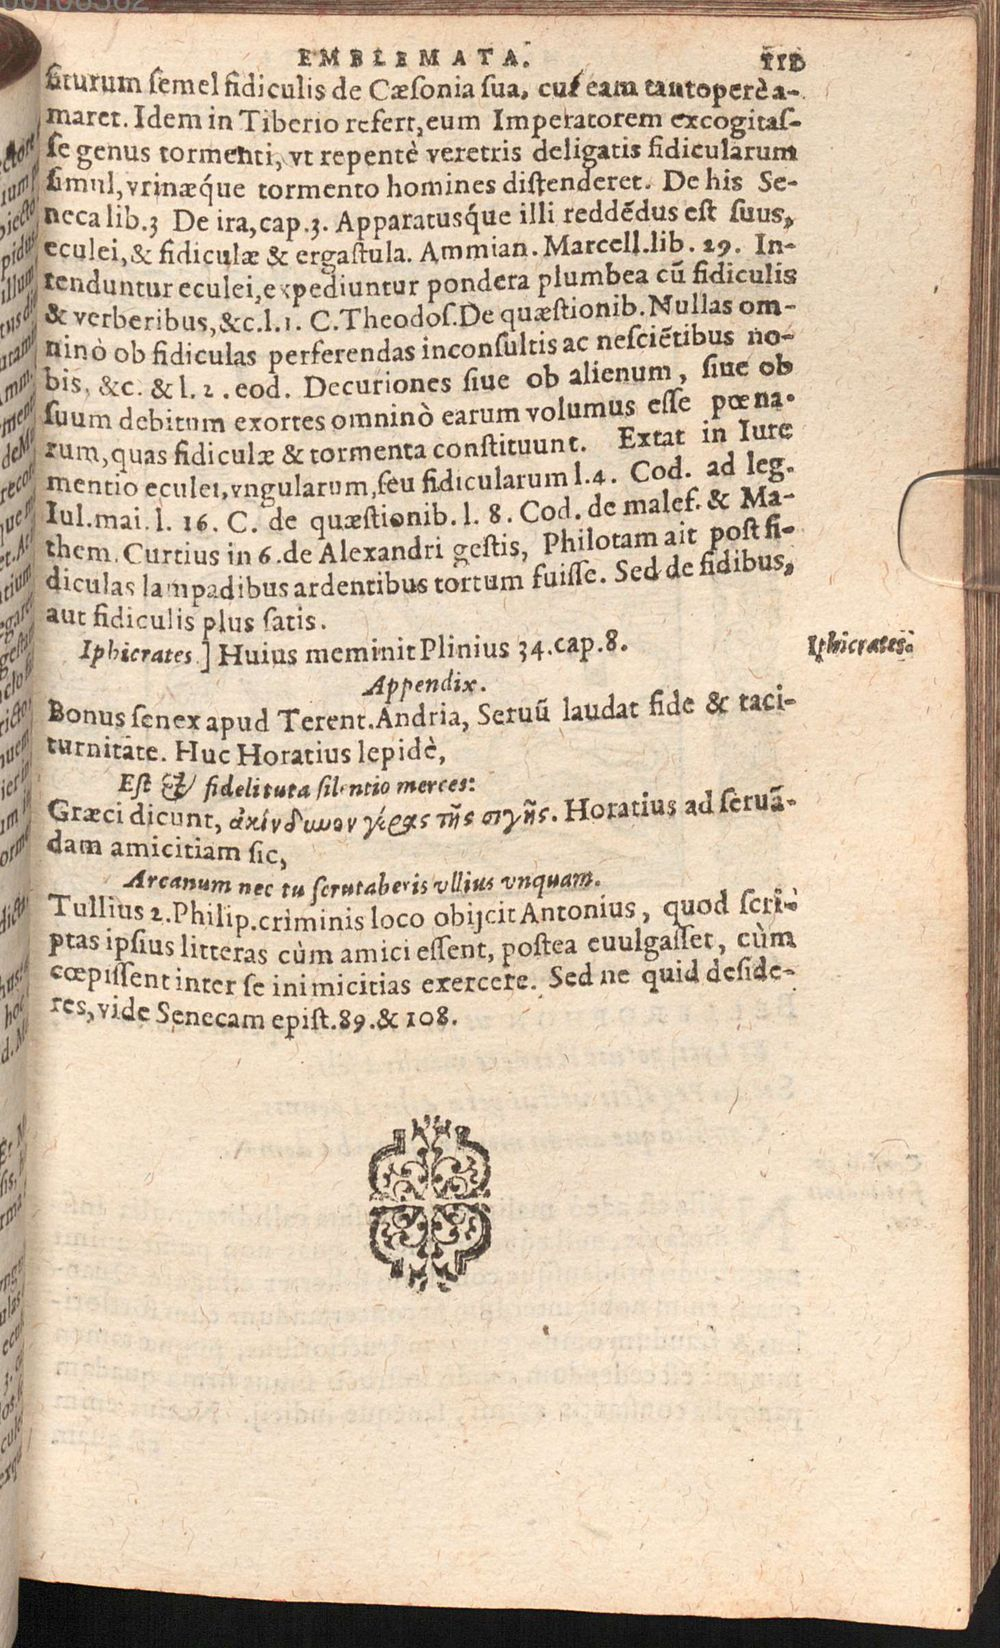 EMBLEMATA.
siturum semel fidiculis de Cæsonia sua, cur eam tantoperè a-
maret. Idem in Tiberio refert, eum Imperatorem excogitas-
se genus tormenti, vt repentè veretris deligatis fidicularum
simul, vrinæq́ue tormento homines distenderet. De his Se-
neca lib.3 De ira, cap.3. Apparatusq́ue illi reddẽdus est suus,
eculei, & fidiculæ & ergastula. Ammian. Marcell. lib. 29. In-
tenduntur eculei, expediuntur pondera plumbea cũ fidiculis
& verberibus, &c. l.1. C. Theodos. De quæstionib. Nullas om-
ninò ob fidiculas perferendas inconsultis ac nesciẽtibus no-
bis, &c. & l. 2. eod. Decuriones siue ob alienum, siue ob
suum debitum exortes omninò earum volumus esse pœna-
rum, quas fidiculæ & tormenta constituunt. Extat in Iure
mentio eculei, vngularum, seu fidicularum l.4. Cod. ad leg.
Iul. mai. l. 16. C. de quæstionib. l. 8. Cod. de malef. & Ma-
them. Curtius in 6. de Alexandri gestis, Philotam ait post fi-
diculas lampadibus ardentibus tortum fuisse. Sed de fidibus,
aut fidiculis plus satis.
Iphicrates.] Huius meminit Plinius 34. cap. 8.
Iphicrates.
Appendix.
Bonus senex apud Terent. Andria, Seruũ laudat fide & taci-
turnitate. Huc Horatius lepidè,
Est & fideli tuta silentio merces:
Græci dicunt, ἀκίνδυνον γέρας τῆς σιγῆς. Horatius ad seruã-
dam amicitiam sic,
Arcanum nec tu scrutaberis vllius vnquam.
Tullius 2. Philip. criminis loco obijcit Antonius, quod scri-
ptas ipsius litteras cùm amici essent, postea euulgasset, cùm
cœpissent inter se inimicitias exercere. Sed ne quid deside-
res, vide Senecam epist. 89. & 108.